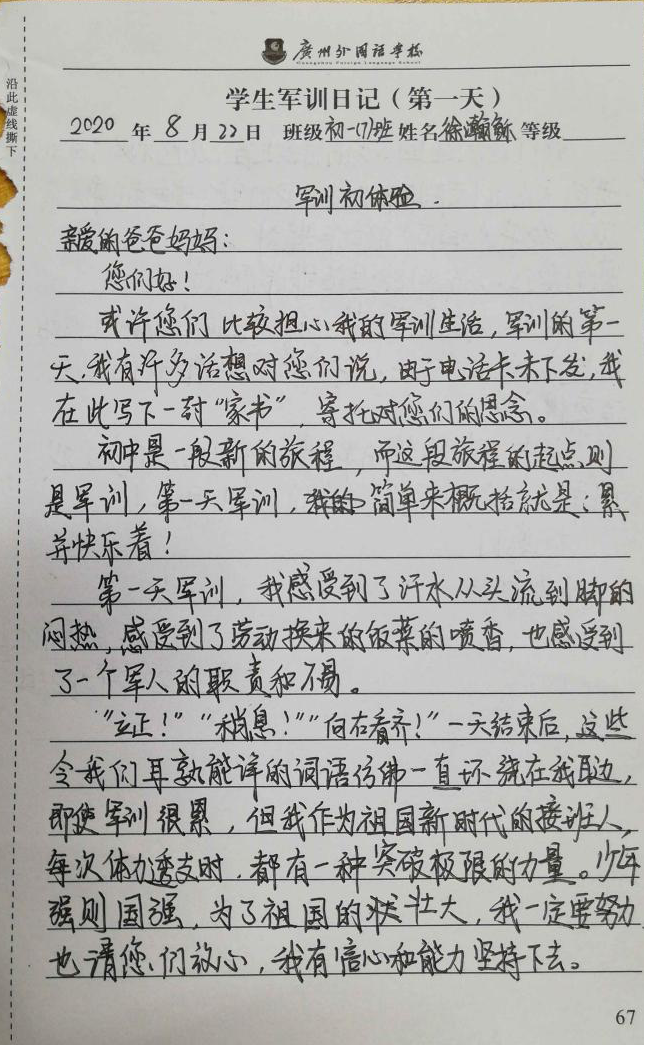 廣州外国语学校
Guangzhou Foreign Language School
沿此虚线撕下
学生军训日记（第一天）
2020 年 8 月 22 日 班级初一(7)班 姓名徐瀚 等级
军训初体验.
亲爱的爸爸妈妈：
您们好！
或许您们比较担心我的军训生活，军训的第一
天，我有许多话想对您们说，由于电话卡未下发，我
在此写下一封“家书”，寄托对您们的思念。
初中是一段新的旅程，而这段旅程的起点则
是军训，第一天军训，简单来概括就是：累
并快乐着！
第一天军训，我感受到了汗水从头流到脚的
闷热，感受到了劳动换来的饭菜的喷香，也感受到
了一个军人的职责和不易。
“立正！”“稍息！”“向右看齐！”一天结束后，这些
令我们耳熟能详的词语仿佛一直环绕在我耳边，
即使军训很累，但我作为祖国新时代的接班人，
每次体力透支时，都有一种突破极限的力量。少年
强则国强，为了祖国的壮大，我一定要努力
也请您们放心，我有信心和能力坚持下去。
67